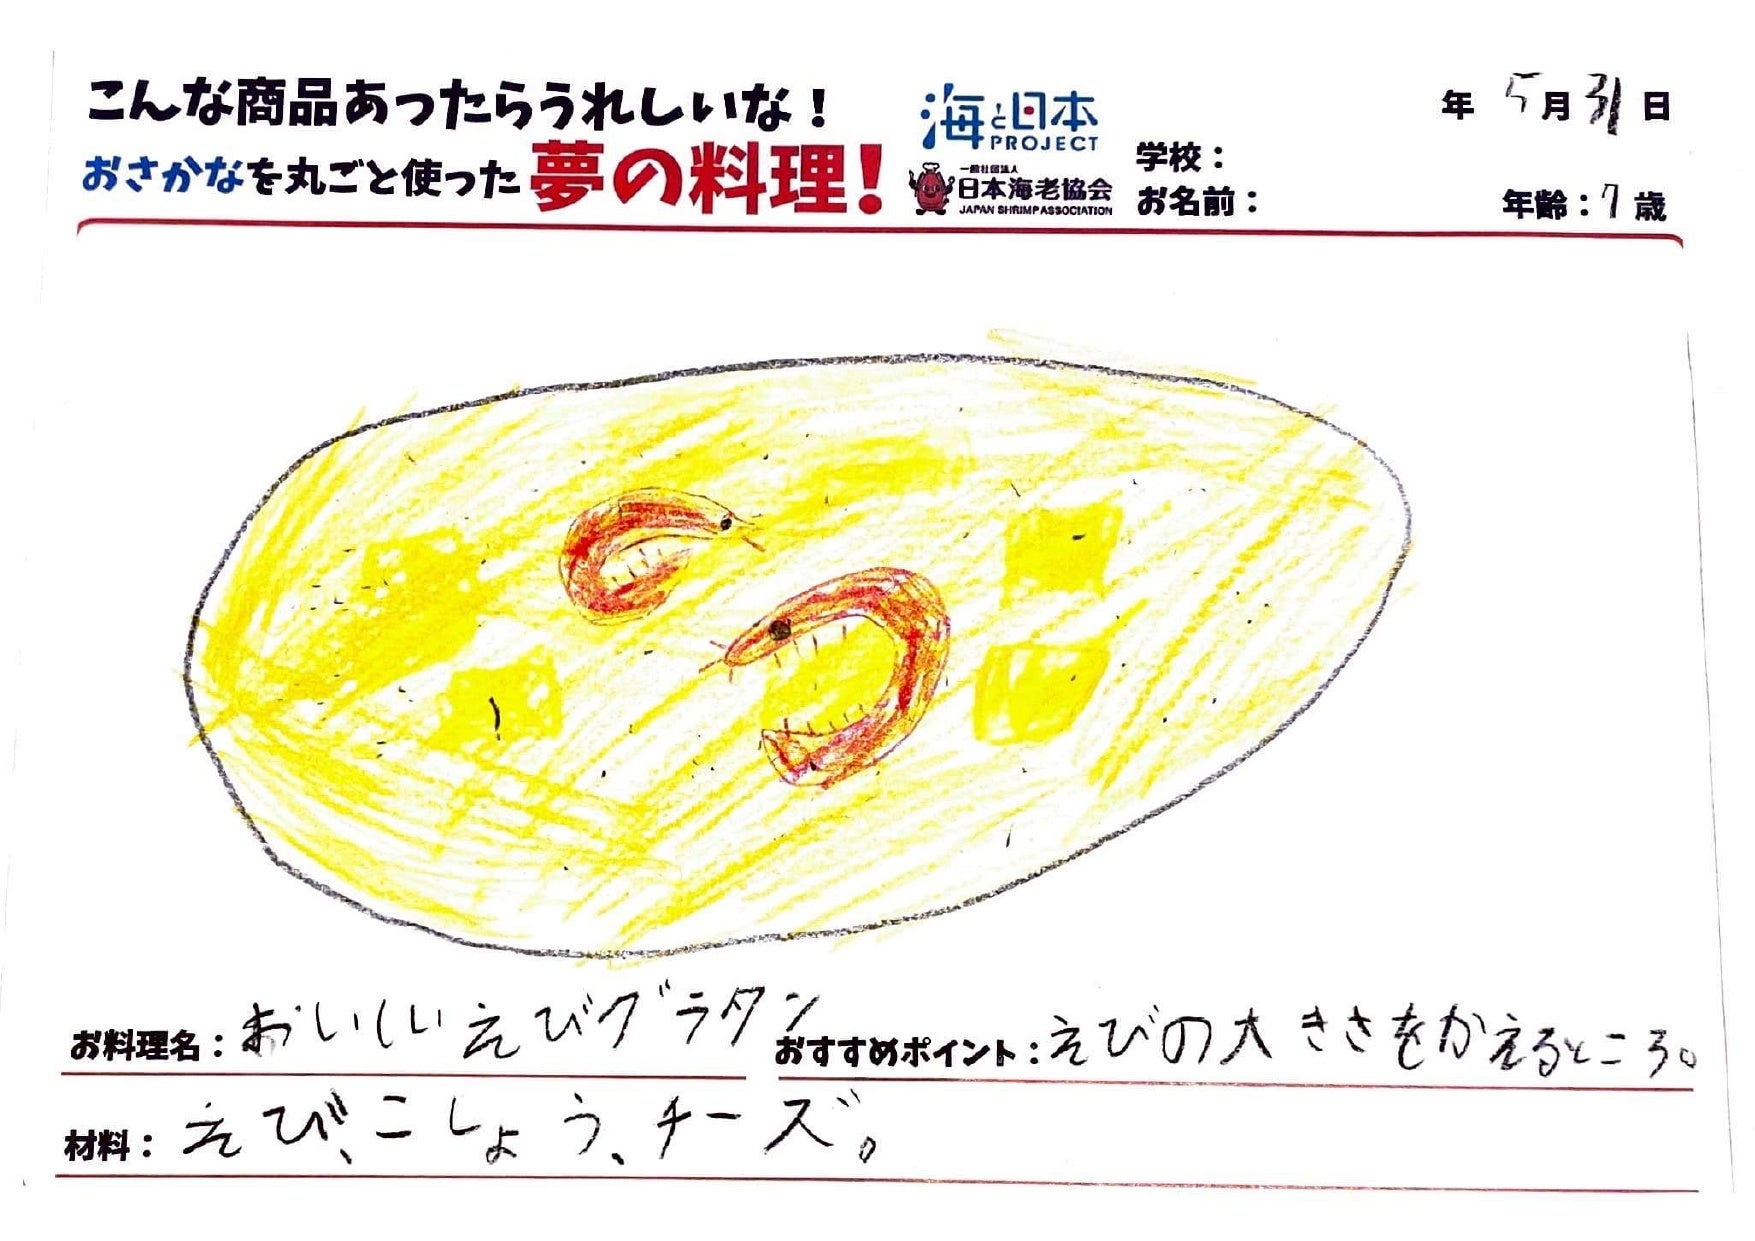 こんな商品あったらうれしいな！
おさかなを丸ごと使った夢の料理！
海と日本
PROJECT
一般社団法人
日本海老協会
JAPAN SHRIMP ASSOCIATION
年 5月31日
学校：
お名前：
年齢：7歳
お料理名：おいしいえびグラタン
おすすめポイント：えびの大きさをかえるところ。
材料：えび、こしょう、チーズ。